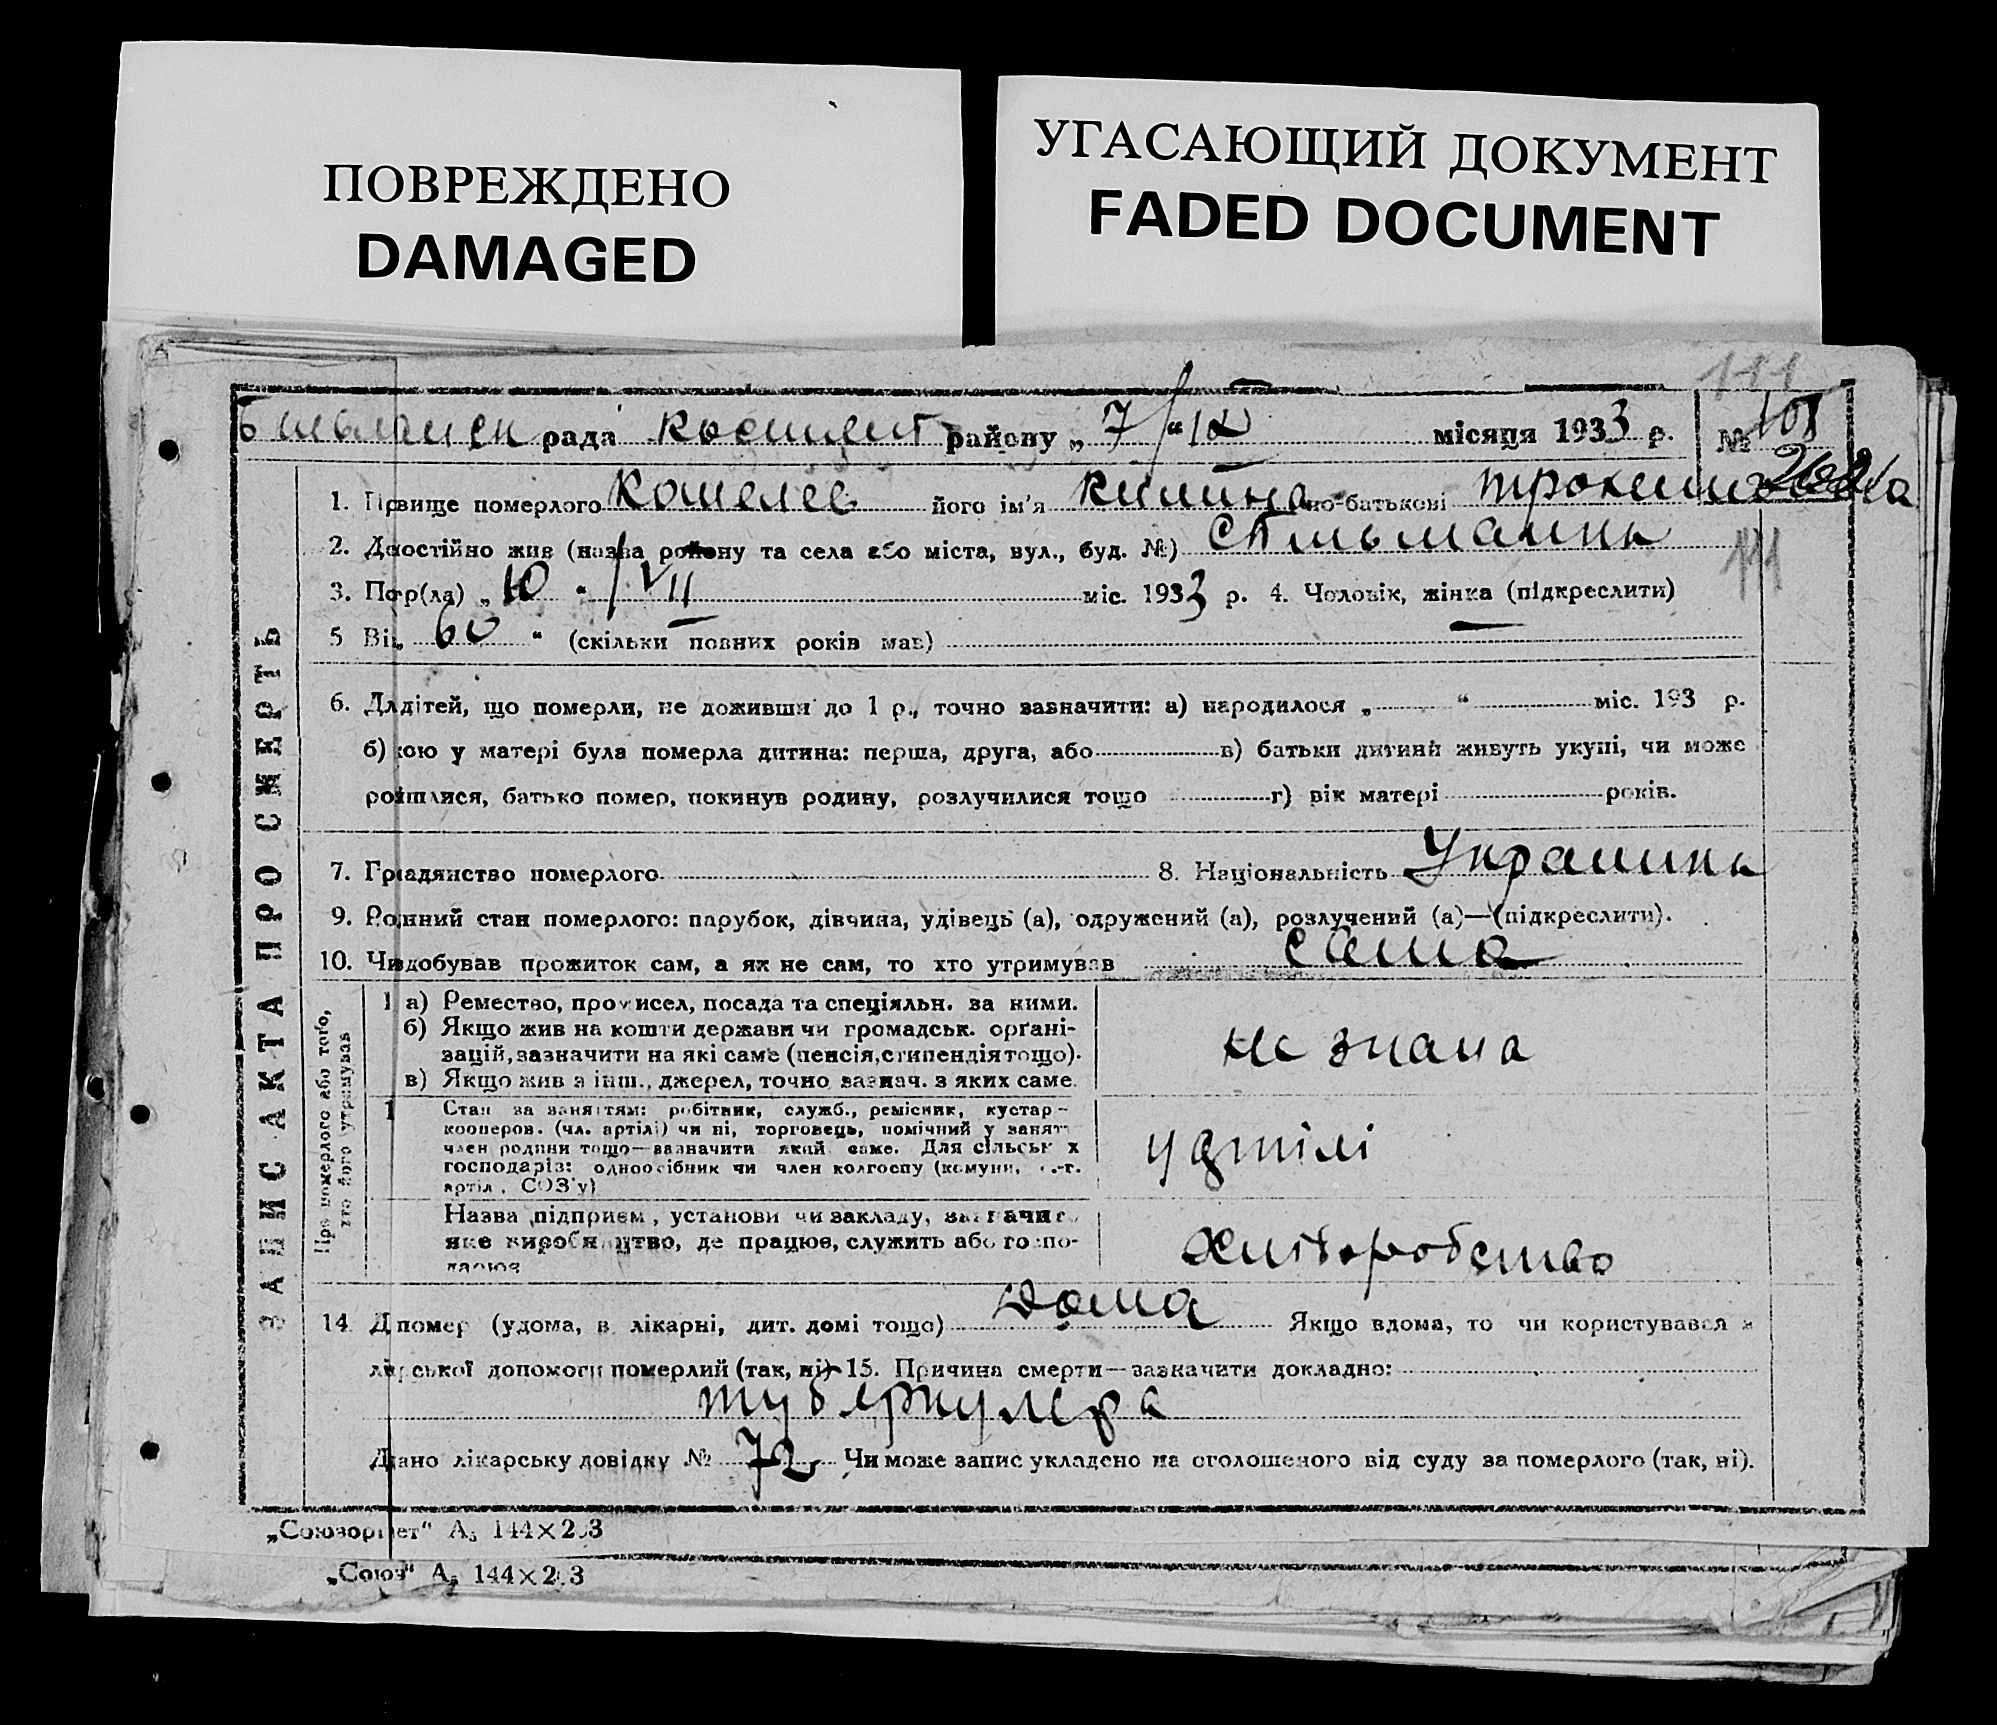 ПОВРЕЖДЕНО
DAMAGED
УГАСАЮЩИЙ ДОКУМЕНТ
FADED DOCUMENT
111
рада району „ 7 “ IX місяця 1933 р. №
1. Прзвище померлого Кошелев його ім'я Килина по-батькові
2. Дпостійно жив (назва району та села або міста, вул., буд. №)
3. Пор(ла) „ 10 “ VII міс. 1933 р. 4. Чоловік, жінка (підкреслити)
111
5 Вік „ 60 “ (скільки повних років мав)
6. Для дітей, що померли, не доживши до 1 р., точно зазначити: а) народилося „ “ міс. 193 р.
б) кою у матері була померла дитина: перша, друга, або в) батьки дитини живуть укупі, чи може
розійшлися, батько помер, покинув родину, розлучилися тощо г) вік матері років.
7. Громадянство померлого 8. Національність Украинка
9. Родинний стан померлого: парубок, дівчина, удівець (а), одружений (а), розлучений (а)—(підкреслити).
10. Чи здобував прожиток сам, а як не сам, то хто утримував сама
ЗАПИС АКТА ПРО СМЕРТЬ
Про померлого або того, хто його утримував
а) Ремество, промисел, посада та спеціяльн. за ними.
б) Якщо жив на кошти держави чи громадськ. орґані-
зацій, зазначити на які саме (пенсія, стипендія тощо).
в) Якщо жив з інш., джерел, точно зазнач. з яких саме.
не знана
Стан за заняттям: робітник, служб., ремісник, кустар-
кооперов. (чл. артілі) чи ні, торговець, помічний у занятт
член родини тощо—зазначити який саме. Для сільськ х
господарів: одноосібник чи член колгоспу (комуни, с.-г.
артіл, СОЗ'у)
у артілі
Назва підприєм, установи чи закладу, зазначит
яке виробництво, де працює, служить або госпо-
дарює
хліборобство
14. Де помер (удома, в лікарні, дит. домі тощо) дома Якщо вдома, то чи користувався з
лікарської допомоги померлий (так, ні) 15. Причина смерти—зазначити докладно:
Дано лікарську довідку № 72 Чи може запис укладено на оголошеного від суду за померлого (так, ні).
„Союзоргет“ А₅ 144×2.3
„Союз“ А₅ 144×2.3